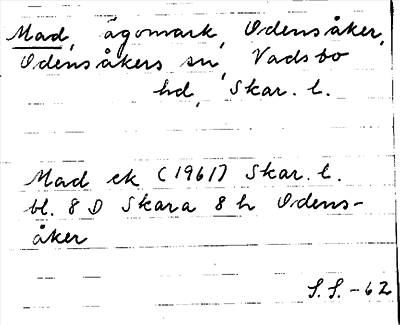 Mad, ägomark, Odensåker,
Odensåkers sn, Vadsbo
hd, Skar. l.
Mad ek (1961) Skar. l.
bl. 8 D Skara 8 h Odens-
åker
S.S. -62